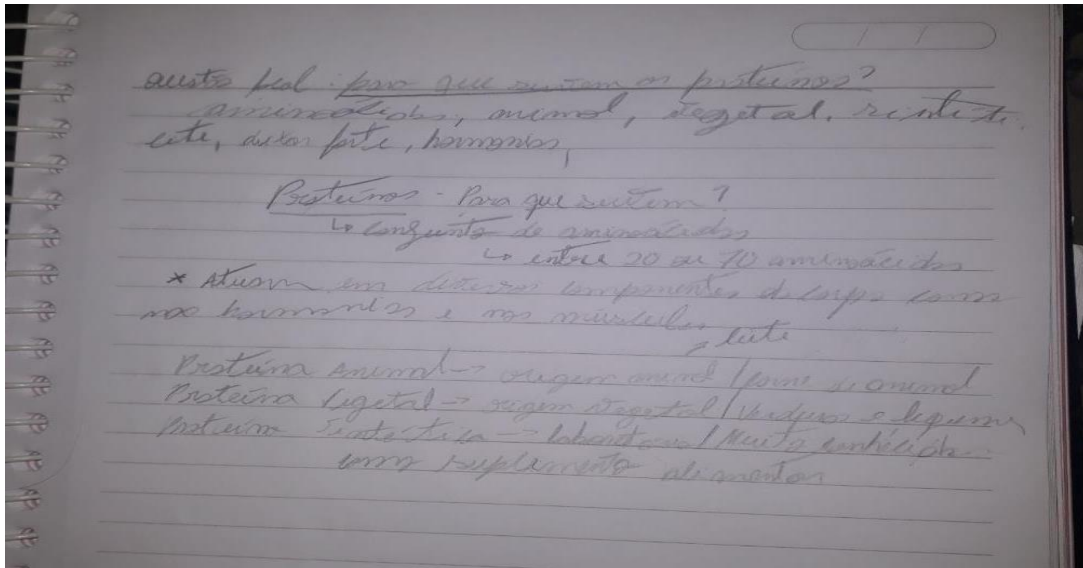 para que servem as proteínas?
aminoácidos, animal, vegetal,
leite, deixar forte, hormônios,
Proteínas - Para que servem?
↳ conjunto de aminoácidos
↳ entre 20 ou 70 aminoácidos
* Atuam em diversos componentes do corpo como
nos hormônios e nos músculos
leite
Proteína Animal → origem animal / carne de animal
Proteína Vegetal → origem vegetal / Verduras e legumes
Proteína Sintética → laboratorial / Muito conhecida
como suplemento alimentar